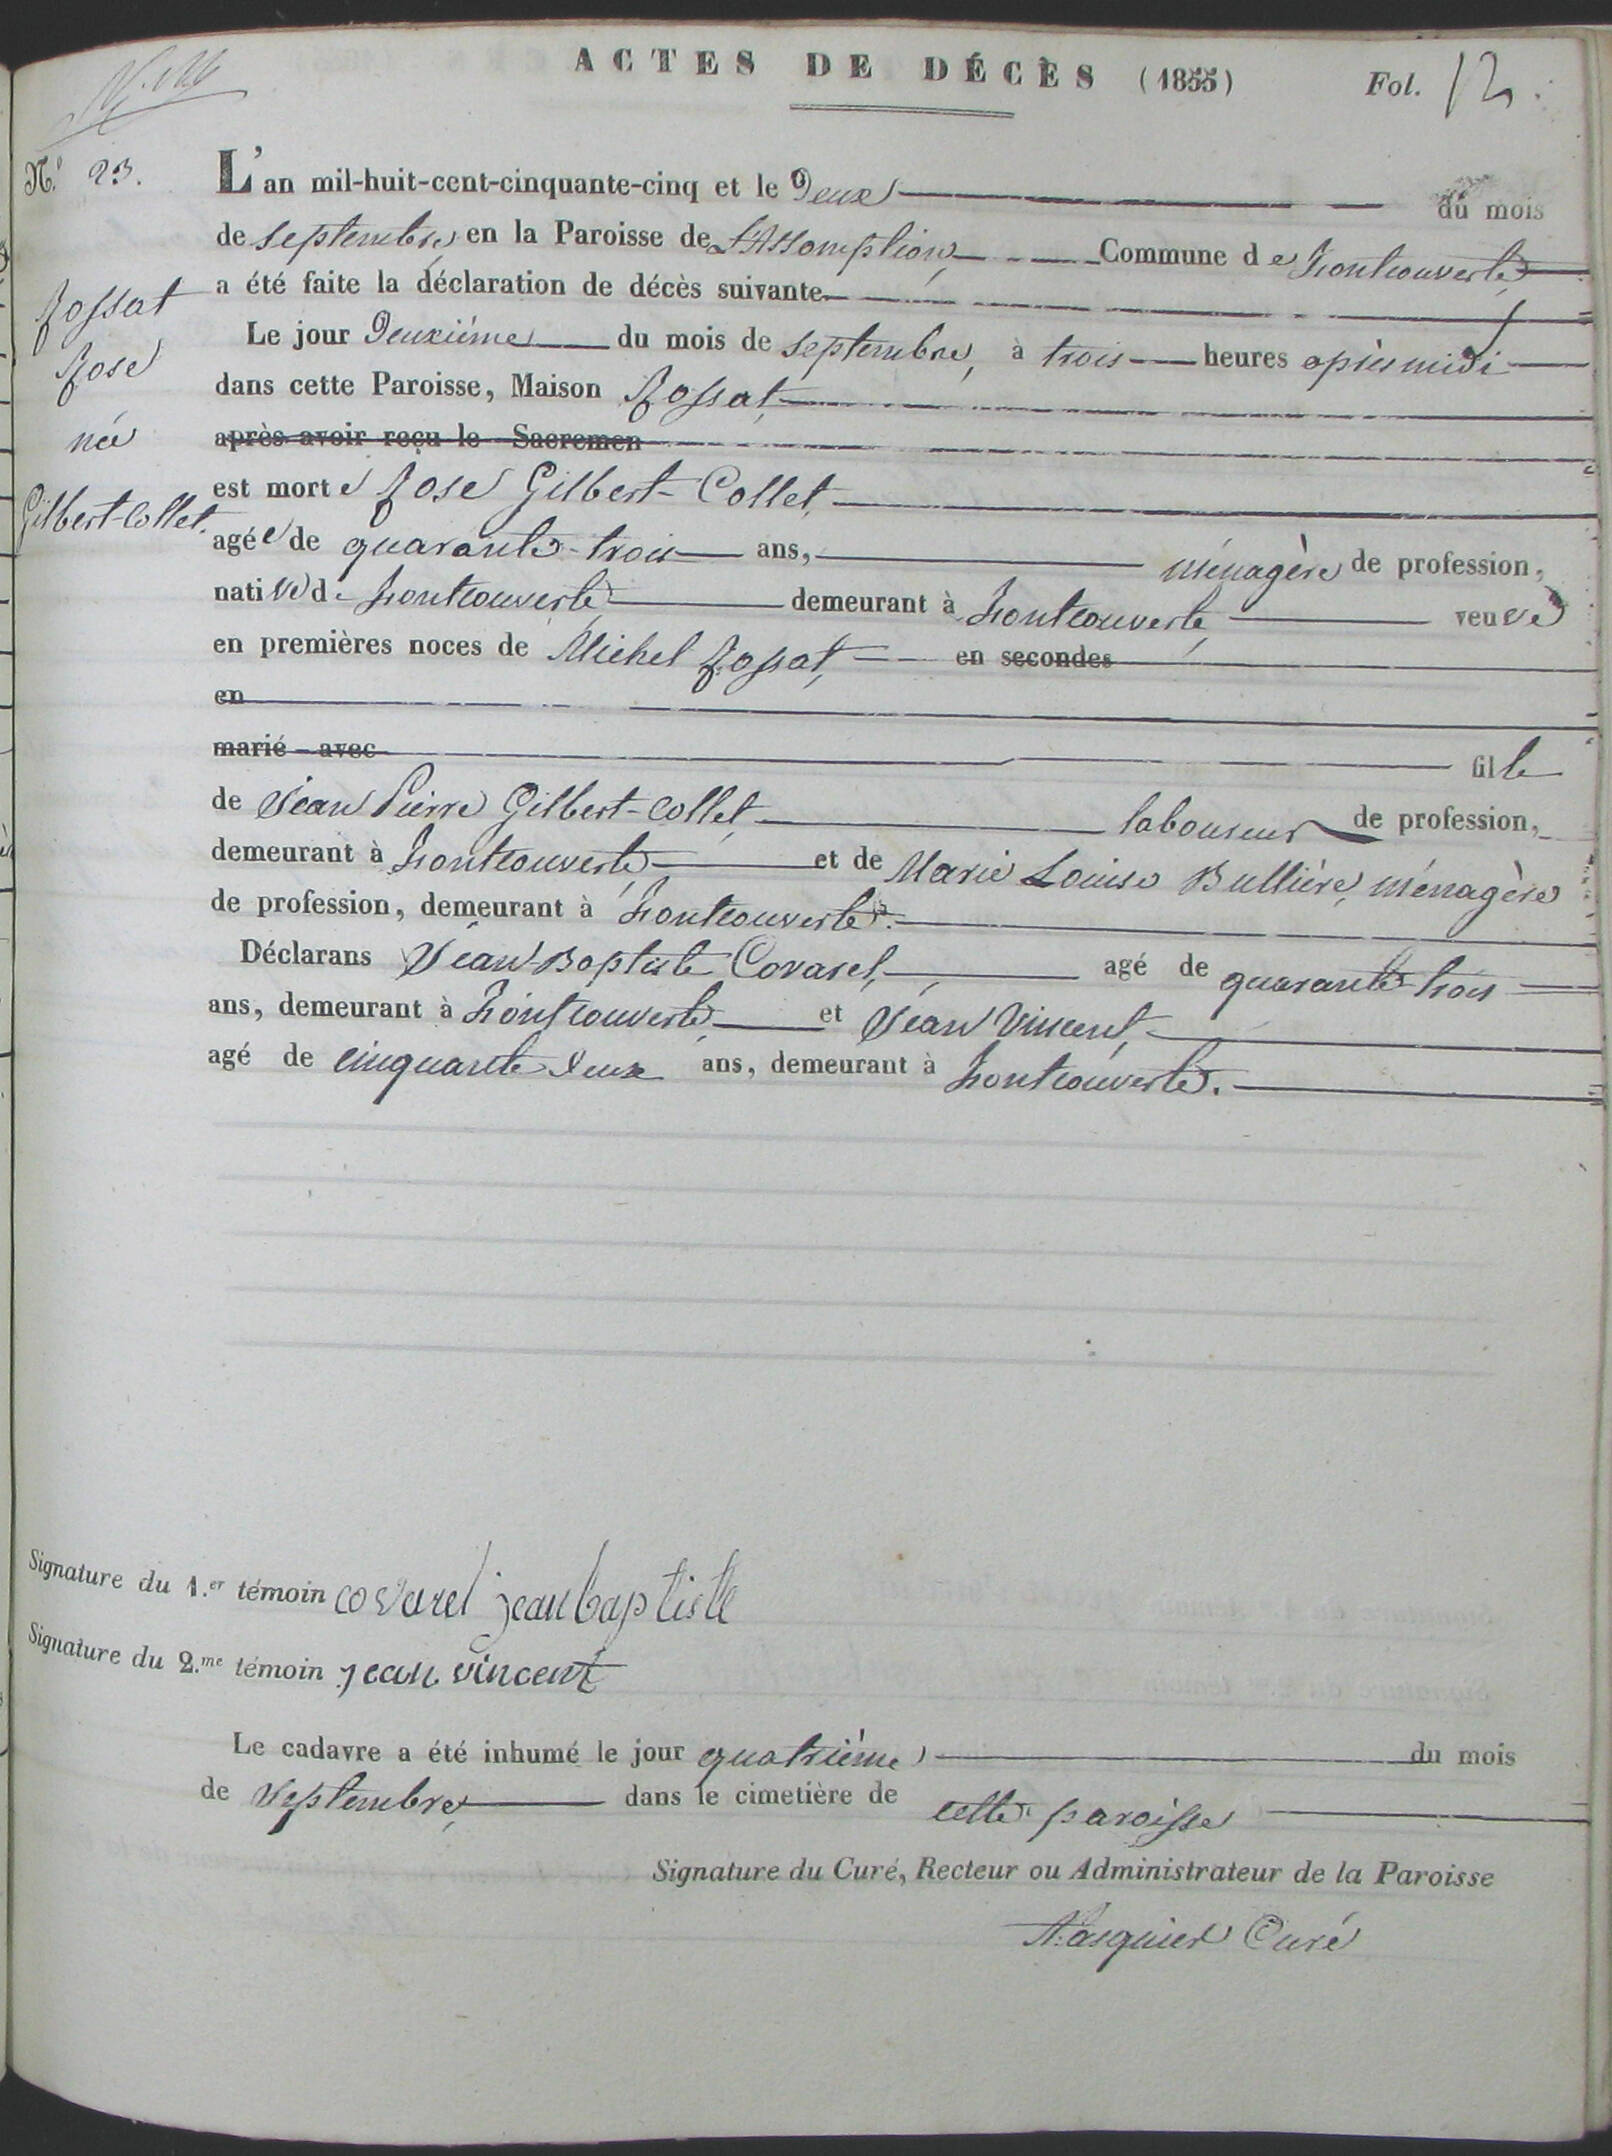 ACTES DE DÉCÈS (1855) Fol. 12.
N.º 23.
L'an mil-huit-cent-cinquante-cinq et le Deux du mois
de septembre, en la Paroisse de L'Assomption, Commune de Fontcouverte
a été faite la déclaration de décès suivante.
Rossat
Rose
née
Gilbert-Collet.
Le jour Deuxième du mois de septembre, à trois heures après midi
dans cette Paroisse, Maison Rossat,
après avoir reçu le Sacremen
est morte Rose Gilbert-Collet,
agée de quarante-trois ans, ménagère de profession,
native de Fontcouverte, demeurant à Fontcouverte, veuve
en premières noces de Michel Rossat, en secondes
en
marié avec
fille
de Jean Pierre Gilbert-Collet, laboureur de profession,
demeurant à Fontcouverte, et de Marie Louise Bullière, ménagère
de profession, demeurant à Fontcouverte.
Déclarans Jean Baptiste Covarel, agé de quarante-trois
ans, demeurant à Fontcouverte, et Jean Vincent,
agé de cinquante deux ans, demeurant à Fontcouverte.
Signature du 1.er témoin covarel jean baptiste
Signature du 2.me témoin jean vincent
Le cadavre a été inhumé le jour quatrième du mois
de septembre, dans le cimetière de cette paroisse
Signature du Curé, Recteur ou Administrateur de la Paroisse
Curé